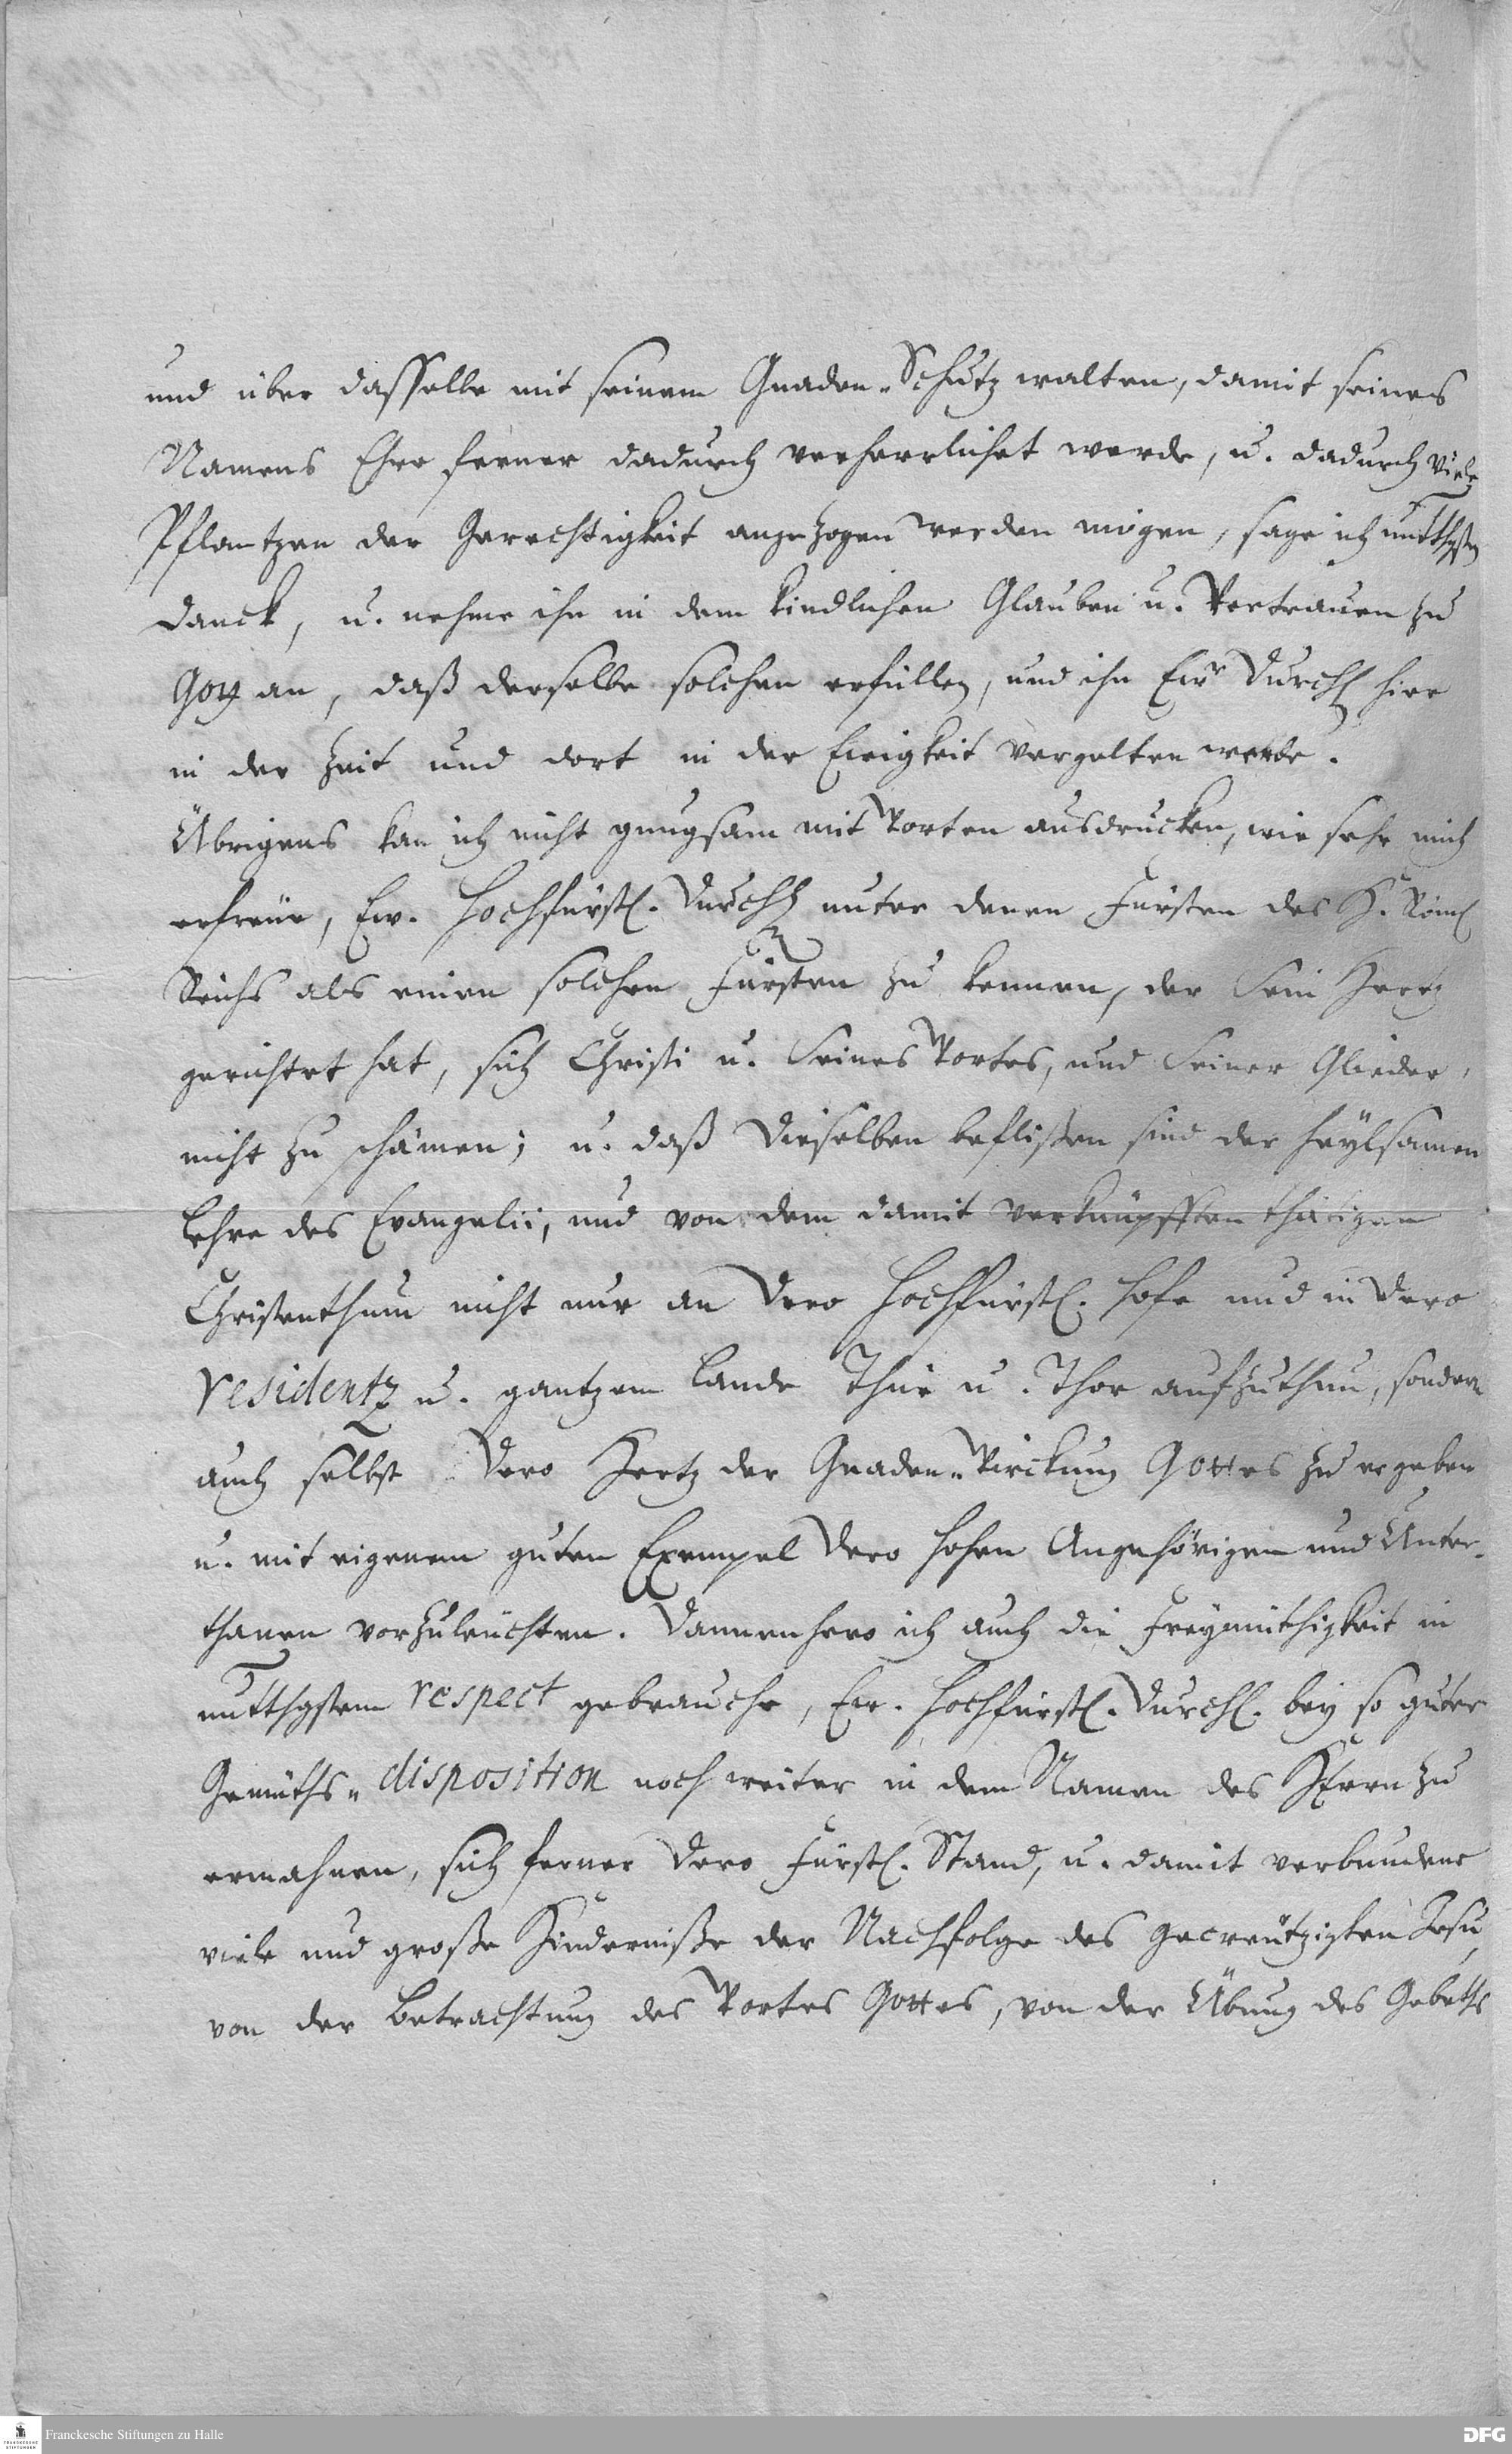 und über dasselbe mit seinem Gnaden-Schutz walten, damit seines
Namens Ehre ferner dadurch verherrlichet werde, u. dadurch viele
Pflantzen der Gerechtigkeit angezogen werden mögen, sage ich untthgsten
Danck, u. nehme ihn in dem kindlichen Glauben u. Vertrauen zu
Gott an, daß derselbe solchen erfüllen, und ihn Ewr Durchl hier
in der Zeit und dort in der Ewigkeit vergelten werde.
Übrigens kan ich nicht gnugsam mit Worten ausdrucken, wie sehr mich
erfreue, Ew. Hochfürstl. Durchl unter denen Fürsten des H. Röml
Reichs als einen solchen Fürsten zu kennen, der Sein Hertz
gerichtet hat, sich Christi u. Seines Wortes, und Seiner Glieder,
nicht zu schämen; u. daß Dieselben beflißen sind der heylsamen
Lehre des Evangelii, und von dem damit verknüpfften thätigen
Christenthum nicht nur an Dero Hochfürstl. Hofe und in Dero
residentz u. gantzem Lande Thür u. Thor aufzuthun, sondern
auch selbst Dero Hertz der Gnaden-Wirckung Gottes zu ergeben
u. mit eigenem guten Exempel Dero hohen Angehörigen und Unter-
thanen vorzuleuchten. Dannenhero ich auch die Freymüthigkeit in
untthgstem respect gebrauche, Ew. Hochfürstl. Durchl. bey so guter
Gemüths-disposition noch weiter in dem Namen des HErrn zu
ermahnen, sich ferner Dero Fürstl. Stand, u. damit verbundene
viele und große Hinderniße der Nachfolge des gecreutzigten Jesu,
von der Betrachtung des Wortes Gottes, von der Übung des Gebeths
Franckesche Stiftungen zu Halle
DFG